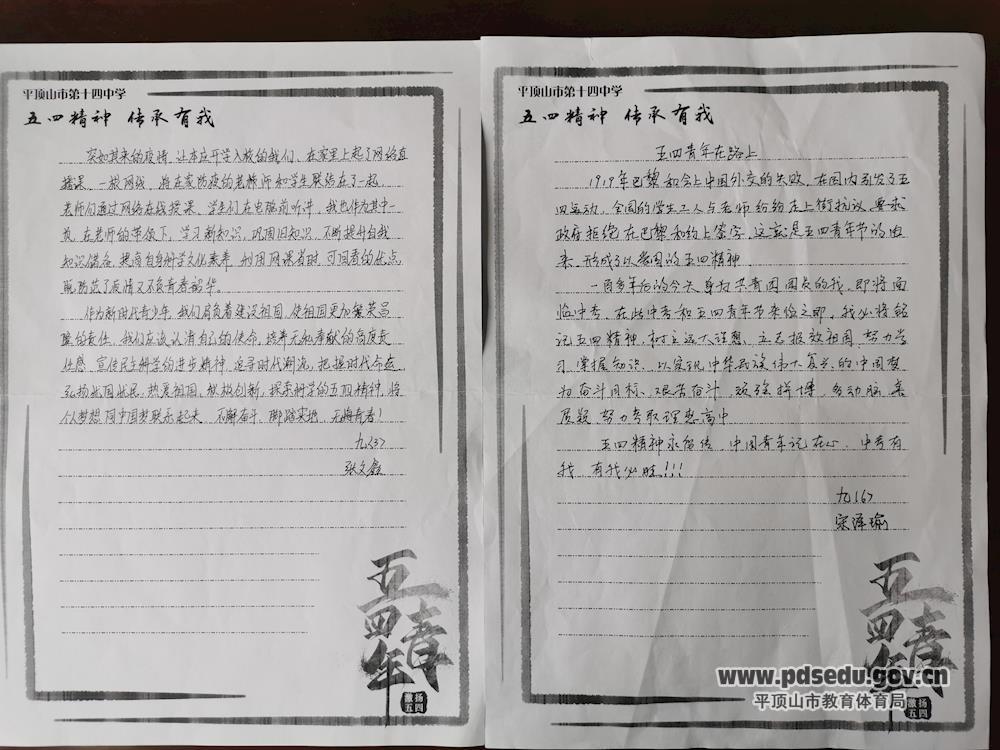 平顶山市第十四中学
五四精神 传承有我
突如其来的疫情,让本应开学入校的我们,在家里上起了网络直
播课,一根网线,将在家防疫的老师和学生联结在了一起,
老师们通过网络在线授课,学生们在电脑前听讲,我也作为其中一
员,在老师的带领下,学习新知识,巩固旧知识,不断提升自我
知识储备,提高自身科学文化素养,利用网课省时,可回看的优点,
既防范了疫情又不负青春韶华。
作为新时代青少年,我们肩负着建设祖国,使祖国更加繁荣昌
盛的责任,我们应该认清自己的使命,培养无私奉献的高度责
任感,宣传民主科学的进步精神,追寻时代潮流,把握时代命运
弘扬爱国爱民,热爱祖国,积极创新,探索科学的五四精神,将
个人梦想同中国梦联系起来,不懈奋斗,脚踏实地,无悔青春!
九(3)
张文鑫
五四青年
激扬五四
平顶山市第十四中学
五四精神 传承有我
五四青年在路上
1919年巴黎和会上中国外交的失败,在国内引发了五
四运动,全国的学生工人与老师纷纷走上街抗议,要求
政府拒绝在巴黎和约上签字,这就是五四青年节的由
来,形成了以爱国的五四精神.
一百多年后的今天,身为共青团团员的我,即将面
临中考,在此中考和五四青年节来临之即,我必将铭
记五四精神,树立远大理想,立志报效祖国,努力学
习,掌握知识,以实现中华民族伟大复兴的中国梦
为奋斗目标,艰苦奋斗,顽强拼搏,多动脑,
质疑,努力考取理想高中.
五四精神永留传,中国青年记在心,中考有
我,有我必胜!!!
九(6)
宋泽瑜
五四青年
激扬五四
www.pdsedu.gov.cn
平顶山市教育体育局